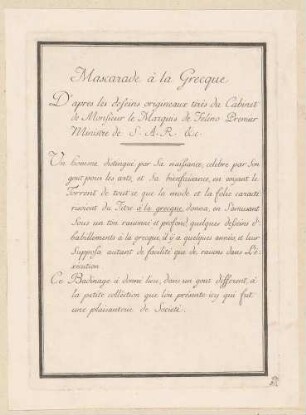 Mascarade à la Grecque
D'apres les desseins origineaux tirés du Cabinet
de Monsieur le Marquis de Felino Premier
Ministre de S. A. R. &c.
Un homme distingué par Sa naissance, celebre par Son
gout pour les arts, et Sa bienfaisance, en voyant le
Torrent de tout ce que la mode et la folie caracte
risoient du Titre à la grecque, donna, en S'amusant
Sous un ton raisonné et profond quelques desseins d'
habillements à la grecque, il y a quelques années, et leur
Supposa autant de facilité que de raison dans L'e
xecution.
Ce Badinage à donné lieu, dans un gout different, à
la petite collection que l'on présente icy qui fut
une plaisanterie de Societé.